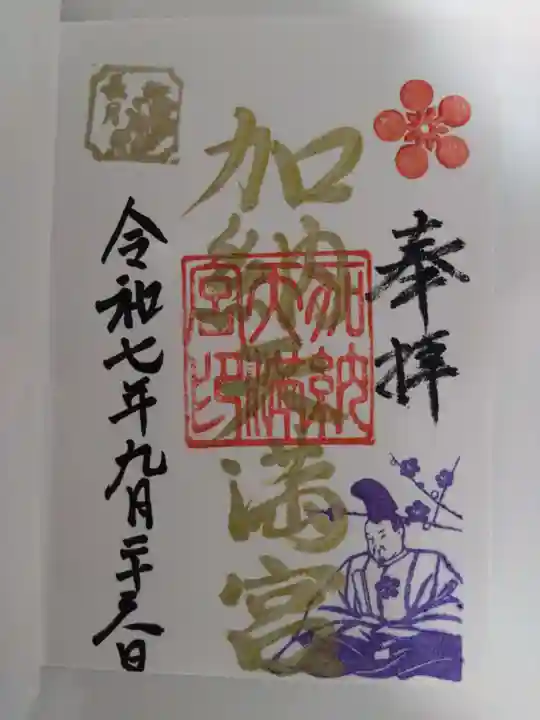 奉拝
加納天満宮
加納天満宮印
令和七年九月二十三日